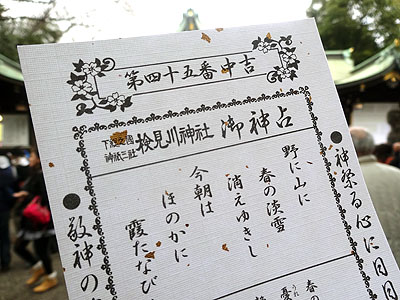 第四十五番中吉
下総国
神祇三社
検見川神社 御神占
神祭る心に日日
野に山に
春の淡雪
消えゆきし
今朝は
ほのかに
霞たなび
敬神の